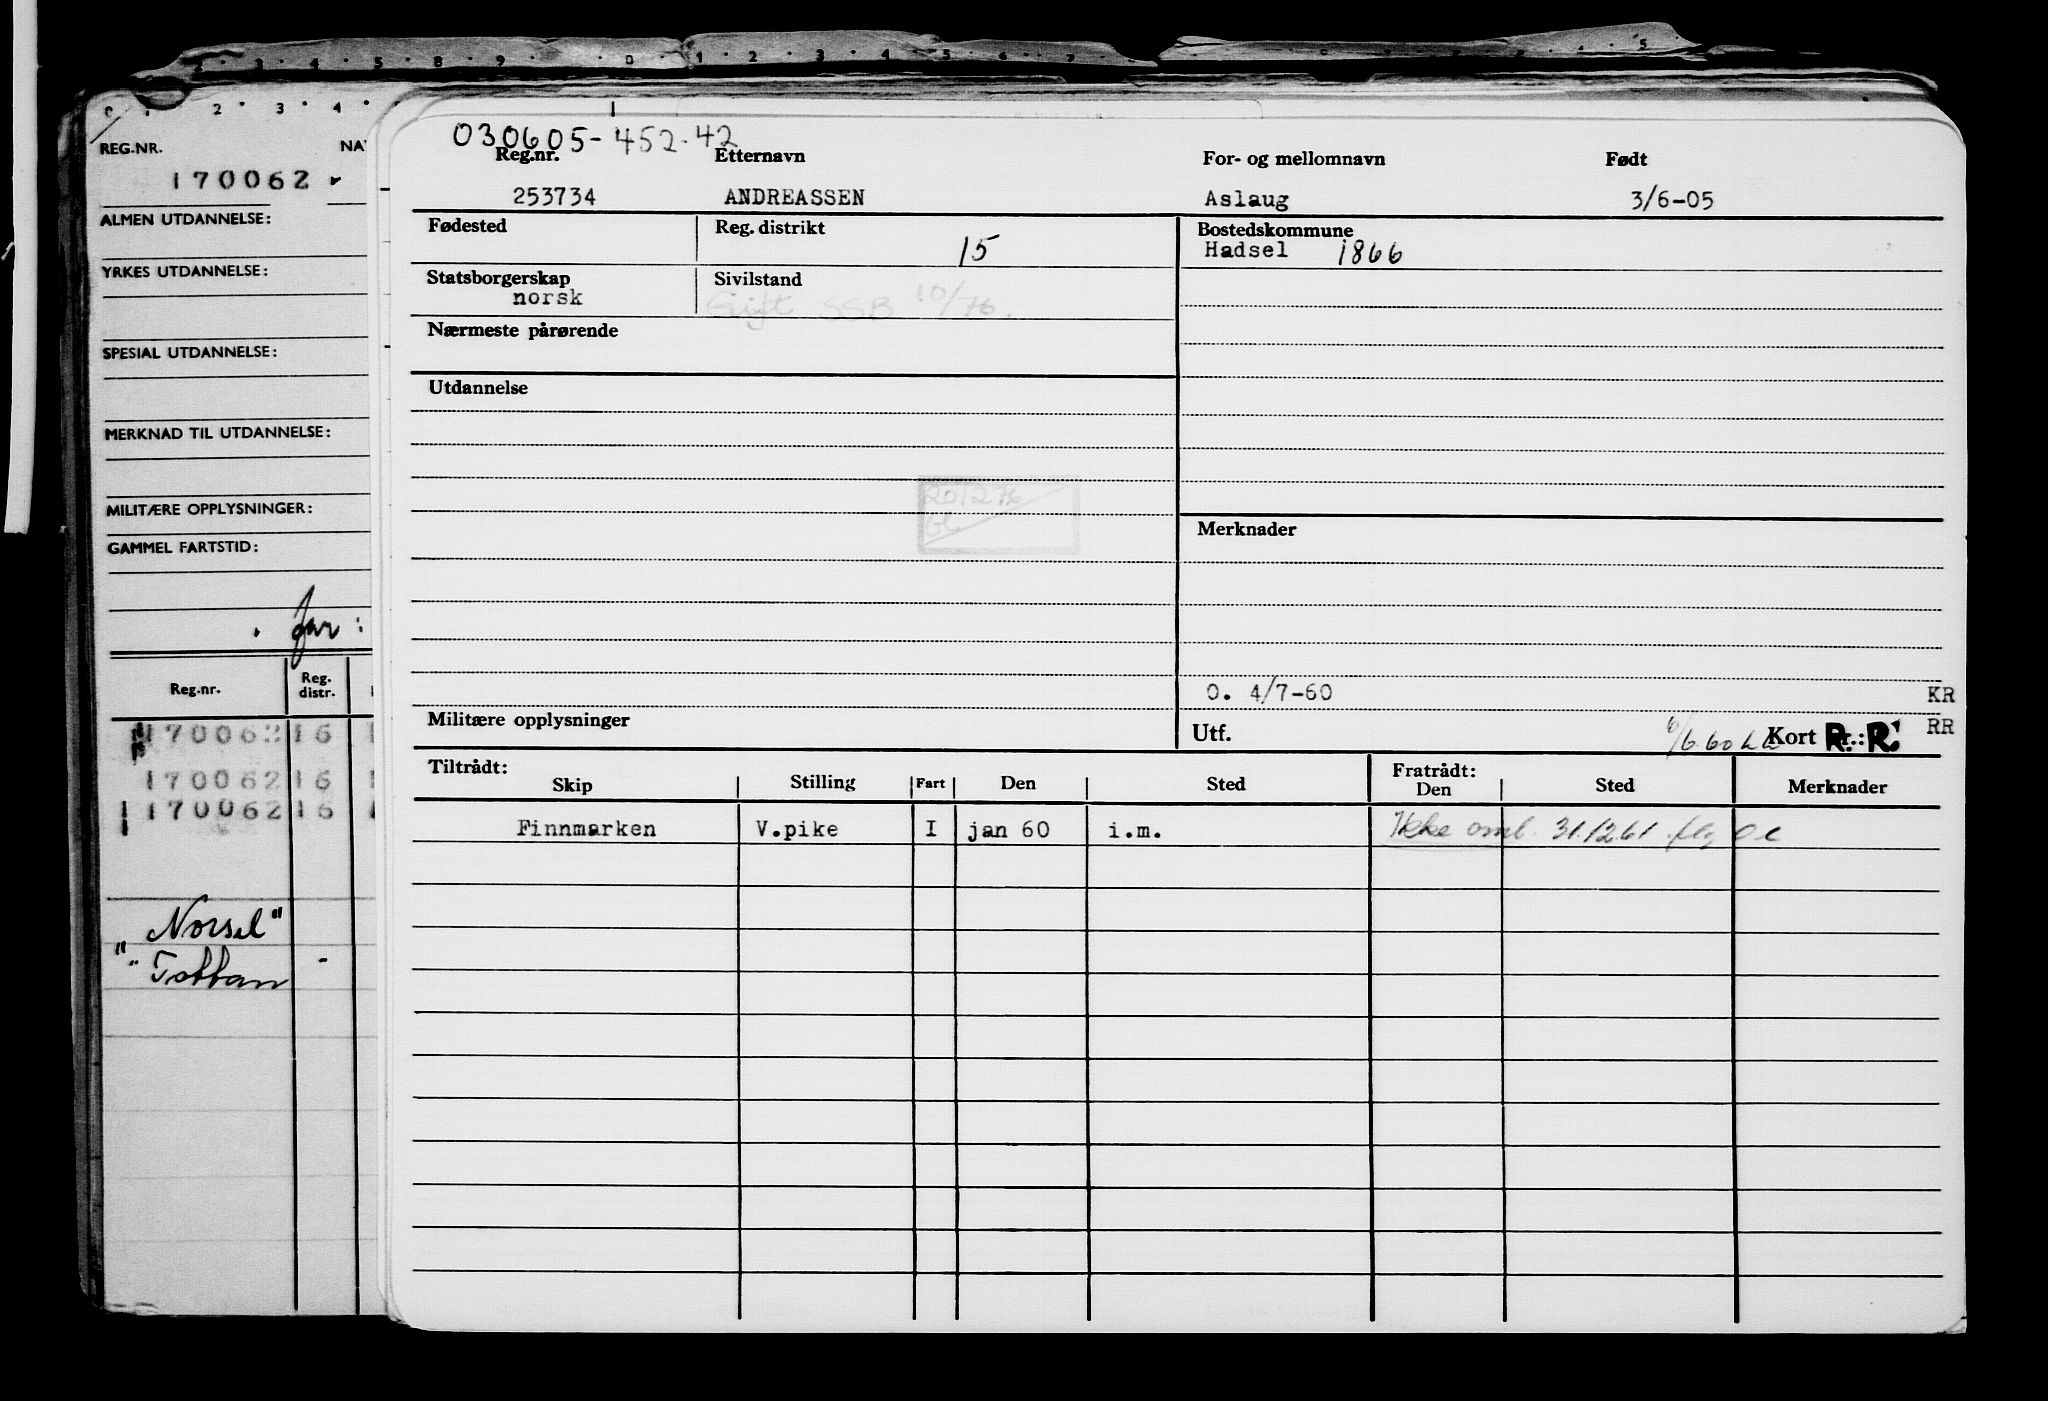 2 · 3 · 4 · 5 · 8 · 9 · 0 · 1 · 2 · 3 · 4 · 5 · 6 · 7
2 · 3 · 4 ·
REG.NR. NA
170062
ALMEN UTDANNELSE:
YRKES UTDANNELSE:
SPESIAL UTDANNELSE:
MERKNAD TIL UTDANNELSE:
MILITÆRE OPPLYSNINGER:
GAMMEL FARTSTID:
far :
Reg.nr. Reg. distr.
170062 16
170062 16
170062 16
"Norsel"
"Tottan
030605-452-42
Reg.nr. Etternavn For- og mellomnavn Født
253734 ANDREASSEN Aslaug 3/6-05
Fødested Reg. distrikt 15 Bostedskommune
Hadsel 1866
Statsborgerskap Sivilstand
norsk Gift SSB 10/76.
Nærmeste pårørende
Utdannelse
201276
Merknader
O. 4/7-60 KR
Militære opplysninger Utf. Kort R.R. RR
Tiltrådt: Fratrådt:
Skip Stilling Fart Den Sted Den Sted Merknader
Finnmarken V.pike I jan 60 i.m. Ikke oml. 31.12.61